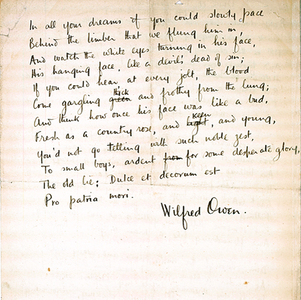 In all your dreams if you could slowly pace
Behind the limber that we flung him in,
And watch the white eyes turning in his face,
His hanging face, like a devil's dead of sin;
If you could hear, at every jolt, the blood
Come gargling thick and frothy from the lung;
And think how once his face was like a bud,
Fresh as a country rose, and keen, and young,
You'd not go telling with such noble zest,
To small boys, ardent for some desperate glory,
The old lie: Dulce et decorum est
Pro patria mori.
Wilfred Owen.